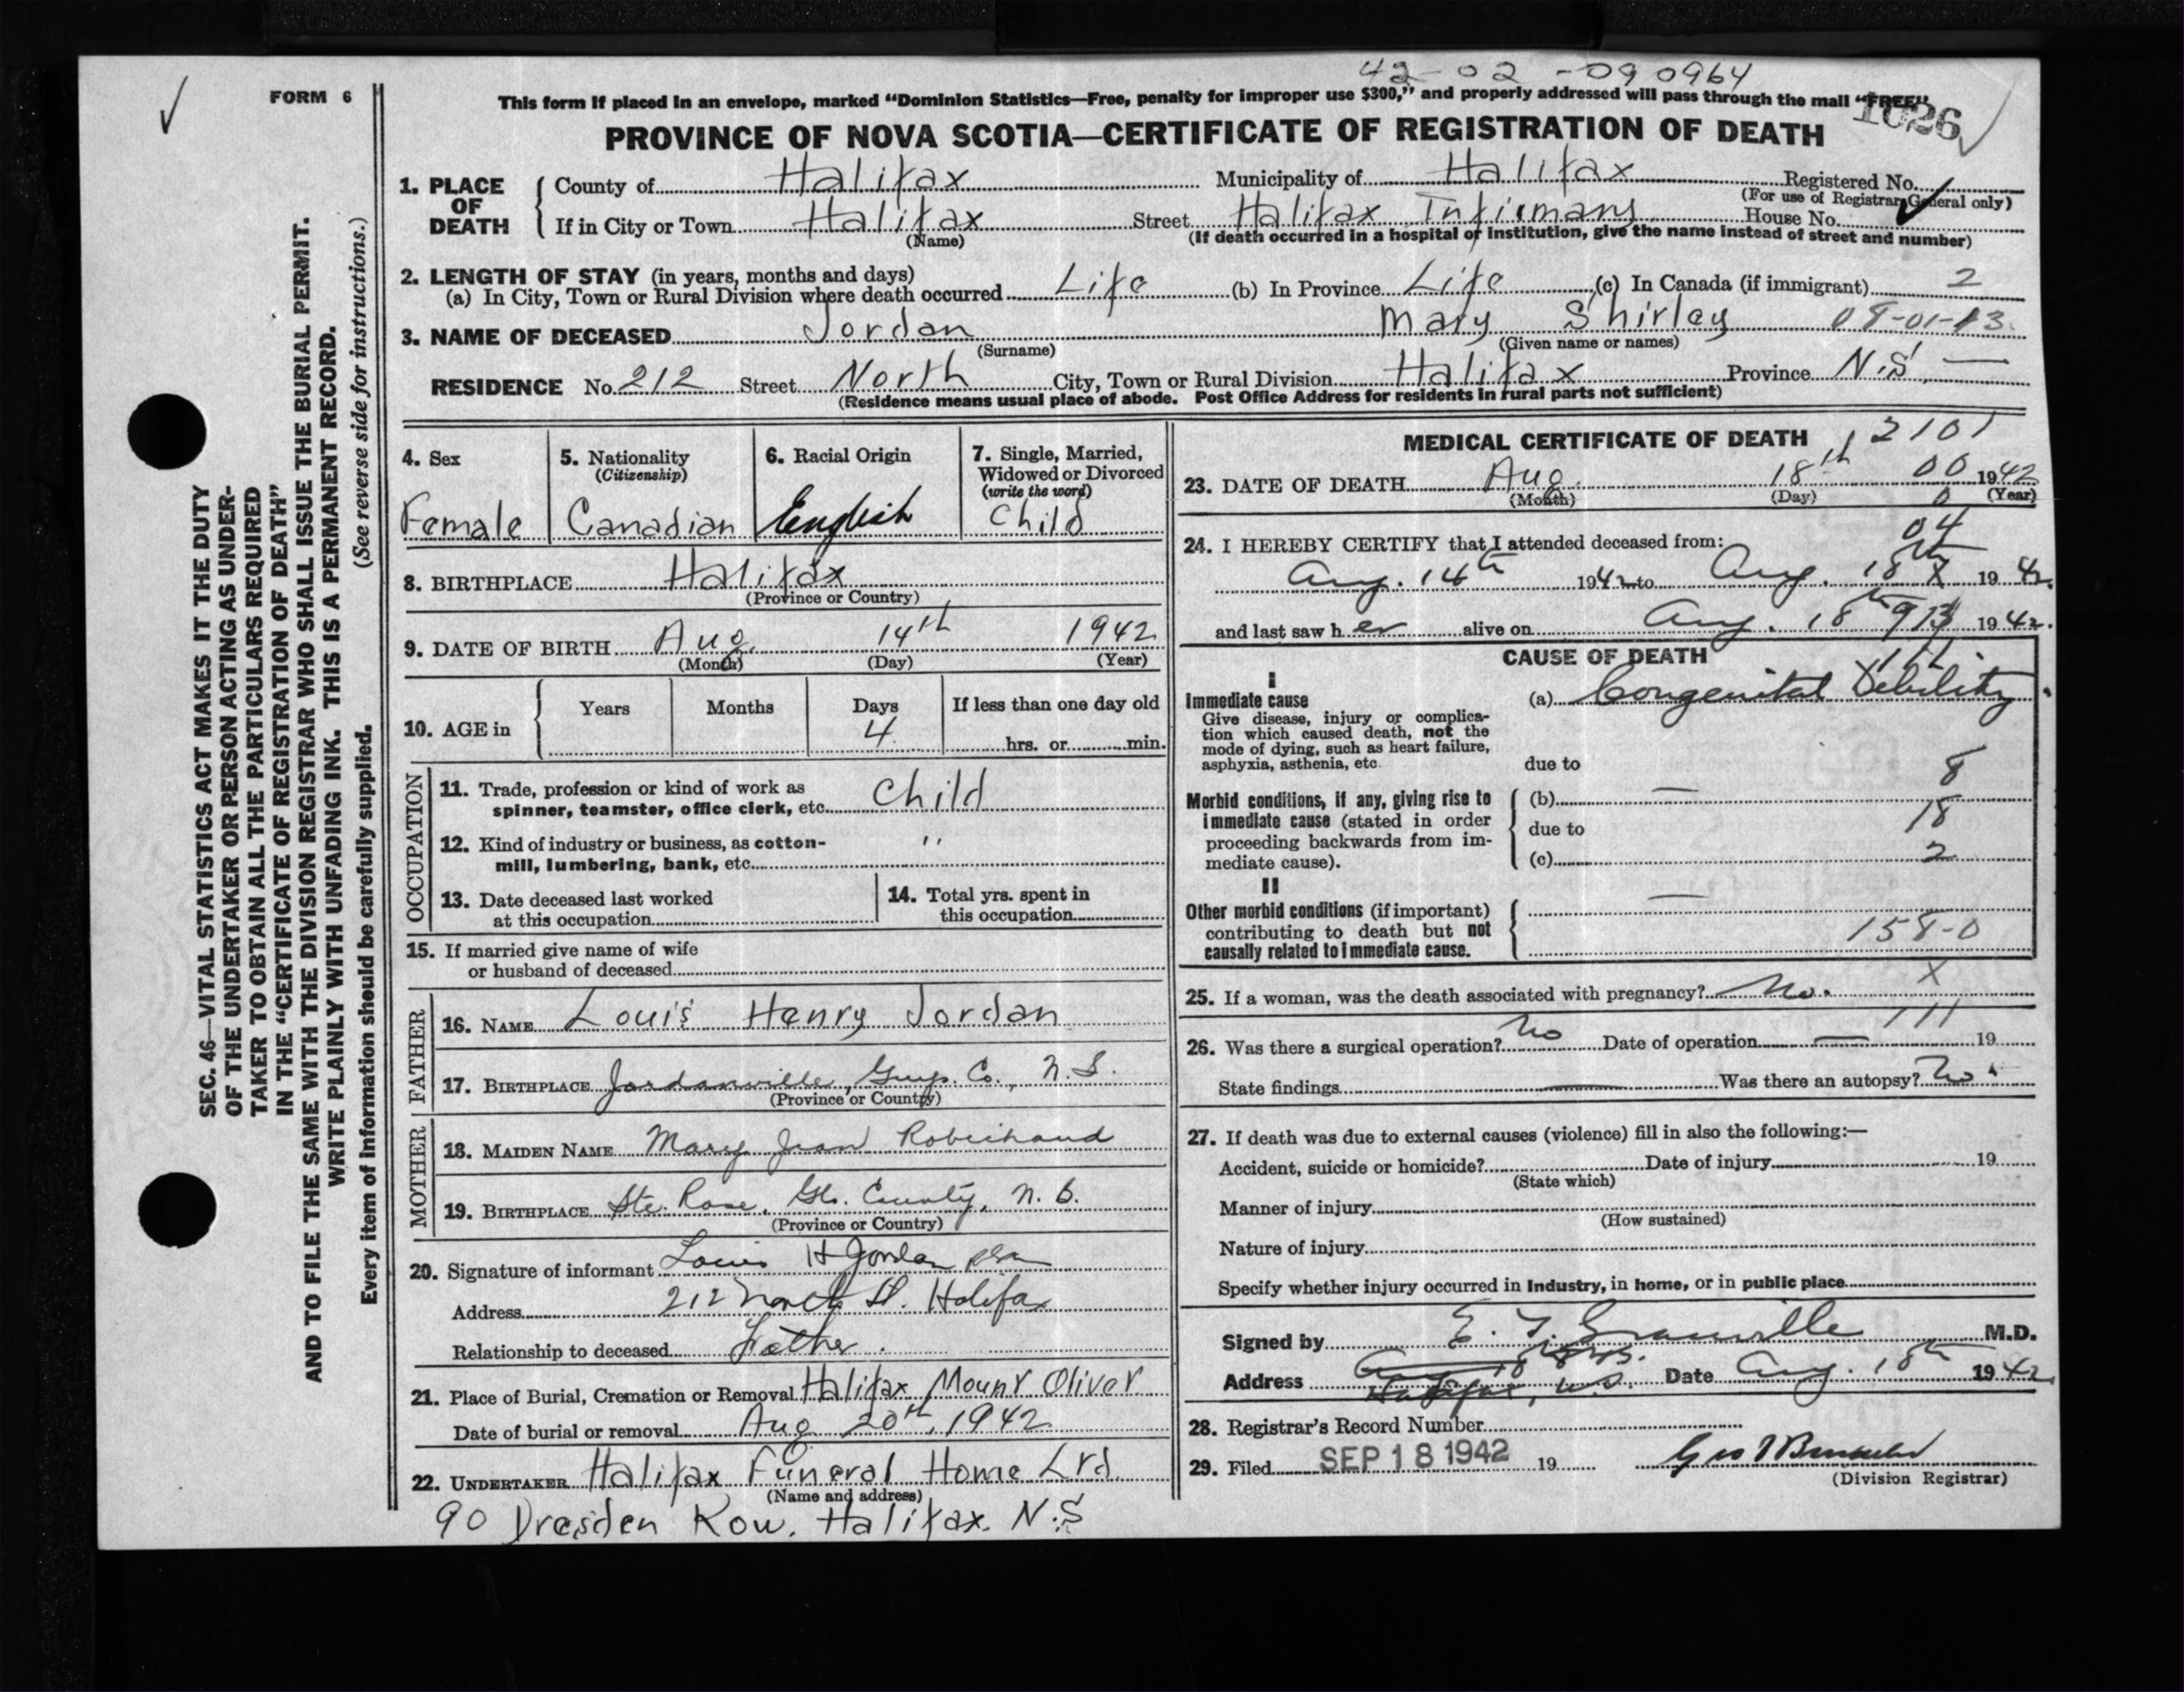 42-02-090964
FORM 6
This form if placed in an envelope, marked "Dominion Statistics—Free, penalty for improper use $300," and properly addressed will pass through the mail "FREE"
1026
PROVINCE OF NOVA SCOTIA—CERTIFICATE OF REGISTRATION OF DEATH
SEC. 46—VITAL STATISTICS ACT MAKES IT THE DUTY
OF THE UNDERTAKER OR PERSON ACTING AS UNDER-
TAKER TO OBTAIN ALL THE PARTICULARS REQUIRED
IN THE "CERTIFICATE OF REGISTRATION OF DEATH"
AND TO FILE THE SAME WITH THE DIVISION REGISTRAR WHO SHALL ISSUE THE BURIAL PERMIT.
WRITE PLAINLY WITH UNFADING INK. THIS IS A PERMANENT RECORD.
Every item of information should be carefully supplied. (See reverse side for instructions.)
1. PLACE OF DEATH
County of Halifax Municipality of Halifax Registered No.
(For use of Registrar General only)
If in City or Town Halifax Street Halifax Infirmary House No.
(Name) (If death occurred in a hospital or institution, give the name instead of street and number)
2. LENGTH OF STAY (in years, months and days)
(a) In City, Town or Rural Division where death occurred Life (b) In Province Life (c) In Canada (if immigrant) 2
3. NAME OF DECEASED Jordan Mary Shirley
(Surname) (Given name or names)
RESIDENCE No. 212 Street North City, Town or Rural Division Halifax Province N.S. —
(Residence means usual place of abode. Post Office Address for residents in rural parts not sufficient)
4. Sex
Female
5. Nationality
(Citizenship)
Canadian
6. Racial Origin
English
7. Single, Married,
Widowed or Divorced
(write the word)
Child
8. BIRTHPLACE Halifax
(Province or Country)
9. DATE OF BIRTH Aug. 14th 1942
(Month) (Day) (Year)
10. AGE in Years Months Days If less than one day old
4 hrs. or min.
OCCUPATION
11. Trade, profession or kind of work as
spinner, teamster, office clerk, etc. Child
12. Kind of industry or business, as cotton-
mill, lumbering, bank, etc. "
13. Date deceased last worked
at this occupation
14. Total yrs. spent in
this occupation
15. If married give name of wife
or husband of deceased
FATHER
16. NAME Louis Henry Jordan
17. BIRTHPLACE Jordanville, Guys. Co., N.S.
(Province or Country)
MOTHER
18. MAIDEN NAME Mary Jean Robichaud
19. BIRTHPLACE Ste. Rose, Glo. County, N.B.
(Province or Country)
20. Signature of informant Louis H Jordan
Address 212 North St. Halifax
Relationship to deceased Father.
21. Place of Burial, Cremation or Removal Halifax Mount Olivet
Date of burial or removal Aug 20th, 1942
22. UNDERTAKER Halifax Funeral Home Ltd.
(Name and address)
90 Dresden Row. Halifax. N.S
MEDICAL CERTIFICATE OF DEATH
2101
23. DATE OF DEATH Aug. 18th 00 1942
(Month) (Day) 0 (Year)
04
24. I HEREBY CERTIFY that I attended deceased from:
Aug. 14th 1942 to Aug. 18th X 1942.
and last saw her alive on Aug. 18th 1942.
CAUSE OF DEATH
I
Immediate cause
Give disease, injury or complica-
tion which caused death, not the
mode of dying, such as heart failure,
asphyxia, asthenia, etc.
(a) Congenital Debility.
due to
8
Morbid conditions, if any, giving rise to
immediate cause (stated in order
proceeding backwards from im-
mediate cause).
(b) —
due to 18
(c) 2
II
Other morbid conditions (if important)
contributing to death but not
causally related to immediate cause.
—
158-0
25. If a woman, was the death associated with pregnancy? No. X
111
26. Was there a surgical operation? No Date of operation — 19
State findings — Was there an autopsy? No.
27. If death was due to external causes (violence) fill in also the following:—
Accident, suicide or homicide? Date of injury 19
(State which)
Manner of injury
(How sustained)
Nature of injury
Specify whether injury occurred in Industry, in home, or in public place
Signed by E. F. Granville M.D.
Address Halifax, N.S. Date Aug. 18th 1942
28. Registrar's Record Number
29. Filed SEP 18 1942 19
(Division Registrar)